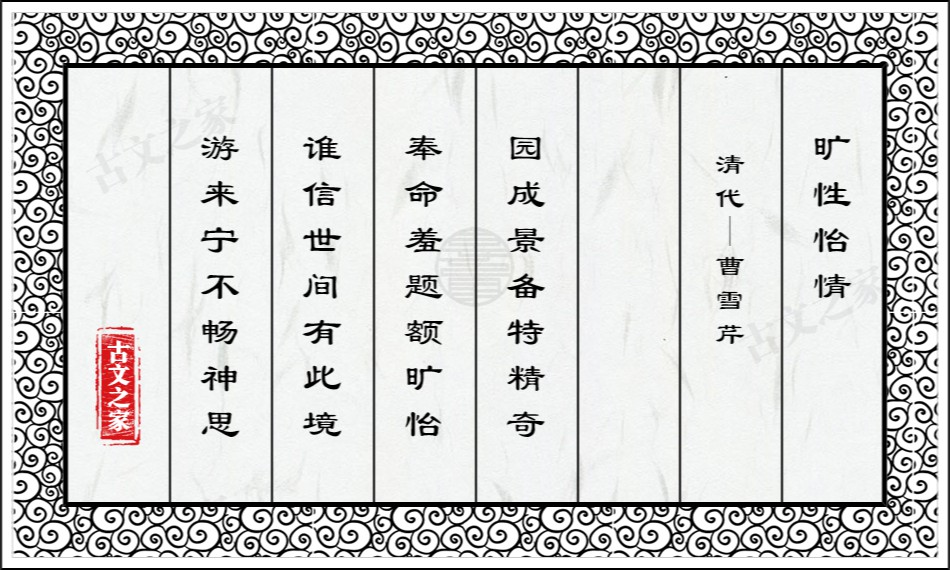 旷性怡情
清代—曹雪芹
园成景备特精奇
奉命羞题额旷怡
谁信世间有此境
游来宁不畅神思
古文之家
古文之家
古文之家